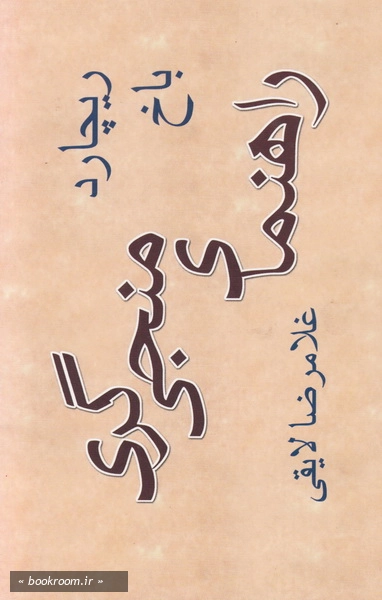 راهنمای
منجی گری
ریچارد
باخ
غلامرضا لایقی
« bookroom.ir »